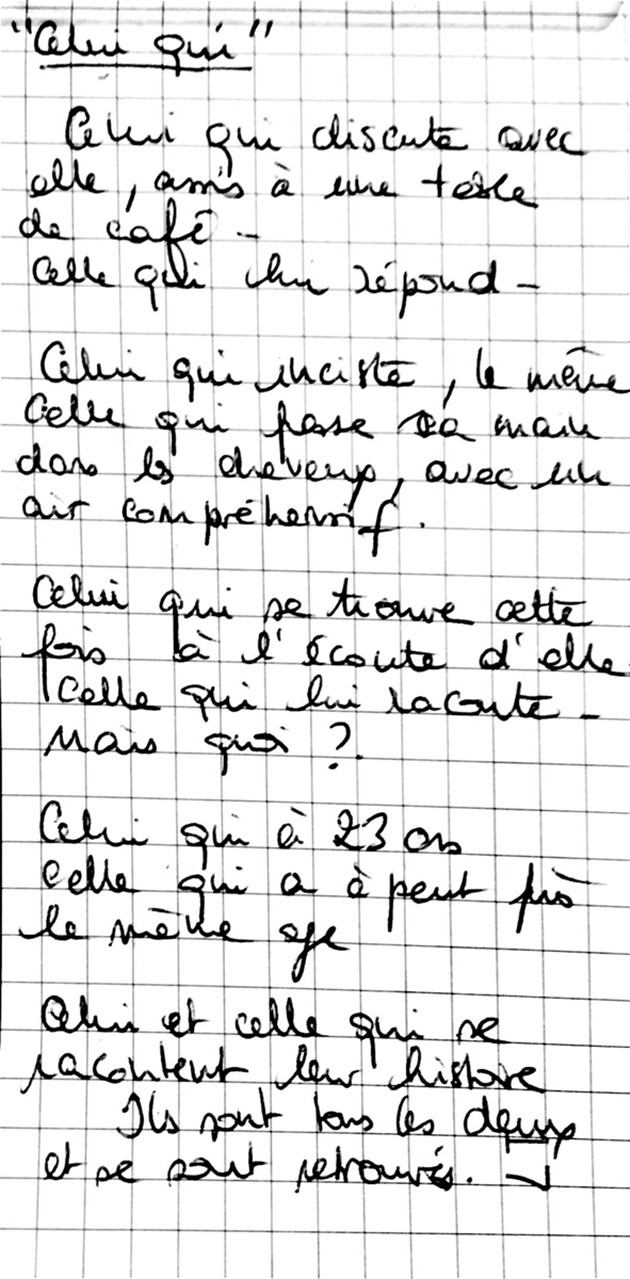 "Celui qui"
Celui qui discute avec
elle, assis à une table
de café -
Celle qui lui répond -
Celui qui inciste, le même
Celle qui passe sa main
dans les cheveux, avec un
air compréhensif.
Celui qui se trouve cette
fois à l'écoute d'elle
Celle qui lui raconte -
Mais quoi ?.
Celui qui à 23 ans
Celle qui a à peut près
le même age
Celui et celle qui se
racontent leur histoire
Ils sont tous les deux
et se sont retrouvés.